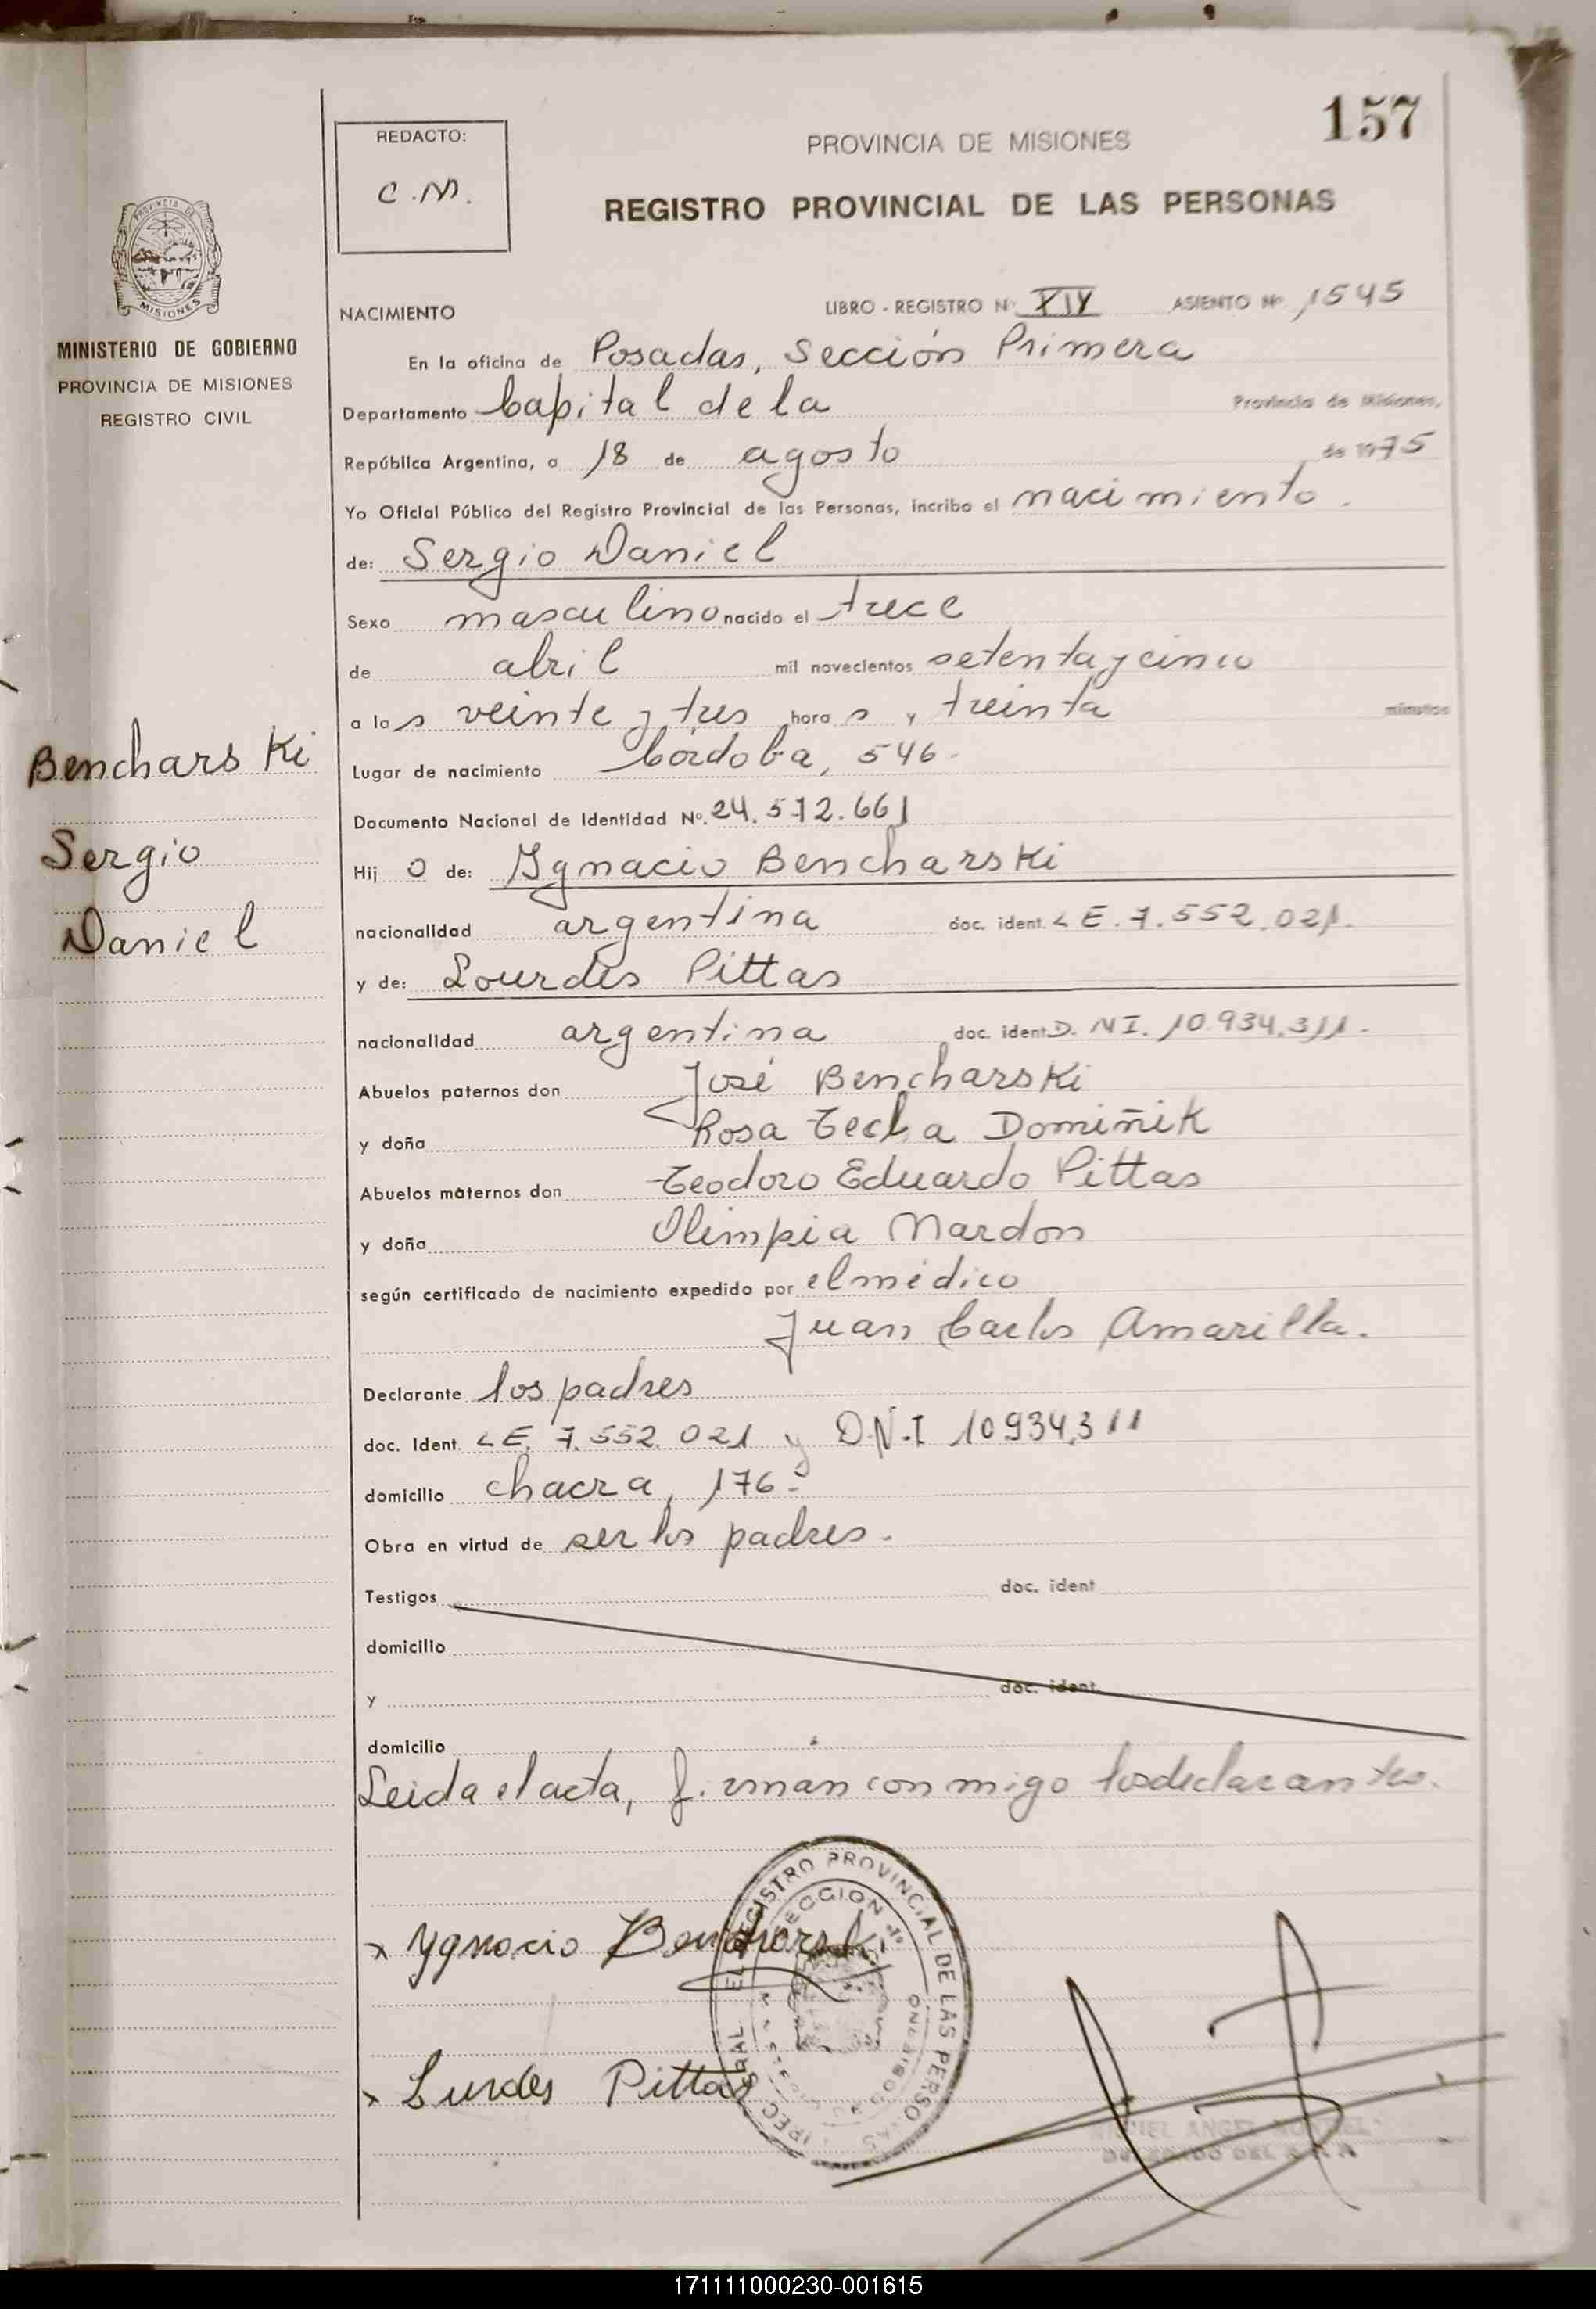 157
REDACTO:
C.M.
PROVINCIA DE MISIONES
REGISTRO PROVINCIAL DE LAS PERSONAS
PROVINCIA DE
MISIONES
MINISTERIO DE GOBIERNO
PROVINCIA DE MISIONES
REGISTRO CIVIL
NACIMIENTO LIBRO - REGISTRO Nº XIV ASIENTO Nº 1545
En la oficina de Posadas, Sección Primera
Departamento Capital de la Provincia de Misiones,
República Argentina, a 18 de agosto de 1975
Yo Oficial Público del Registro Provincial de las Personas, incribo el nacimiento.
de: Sergio Daniel
Sexo masculino nacido el trece
de abril mil novecientos setenta y cinco
a las veinte y tres horas y treinta minutos
Lugar de nacimiento Córdoba, 546.
Documento Nacional de Identidad Nº. 24.512.661
Bencharski
Sergio
Daniel
Hijo de: Ygnacio Bencharski
nacionalidad argentina doc. ident. LE. 7.552.021.
y de: Lourdes Pittas
nacionalidad argentina doc. ident. D.NI. 10.934.311.
Abuelos paternos don José Bencharski
y doña Rosa Tecla Domiñik
Abuelos maternos don Teodoro Eduardo Pittas
y doña Olimpia Mardon
según certificado de nacimiento expedido por el médico
Juan Carlos Amarilla.
Declarante los padres
doc. Ident. LE. 7.552.021 y D.N.I 10934.311
domicilio chacra, 176.
Obra en virtud de ser los padres.
Testigos doc. ident
domicilio
y doc. ident.
domicilio
Leida el acta, firman conmigo los declarantes.
REGISTRO PROVINCIAL DE LAS PERSONAS
SECCION 1º
x Ygnacio Bencharski
x Lurdes Pittas
ANGEL
171111000230-001615